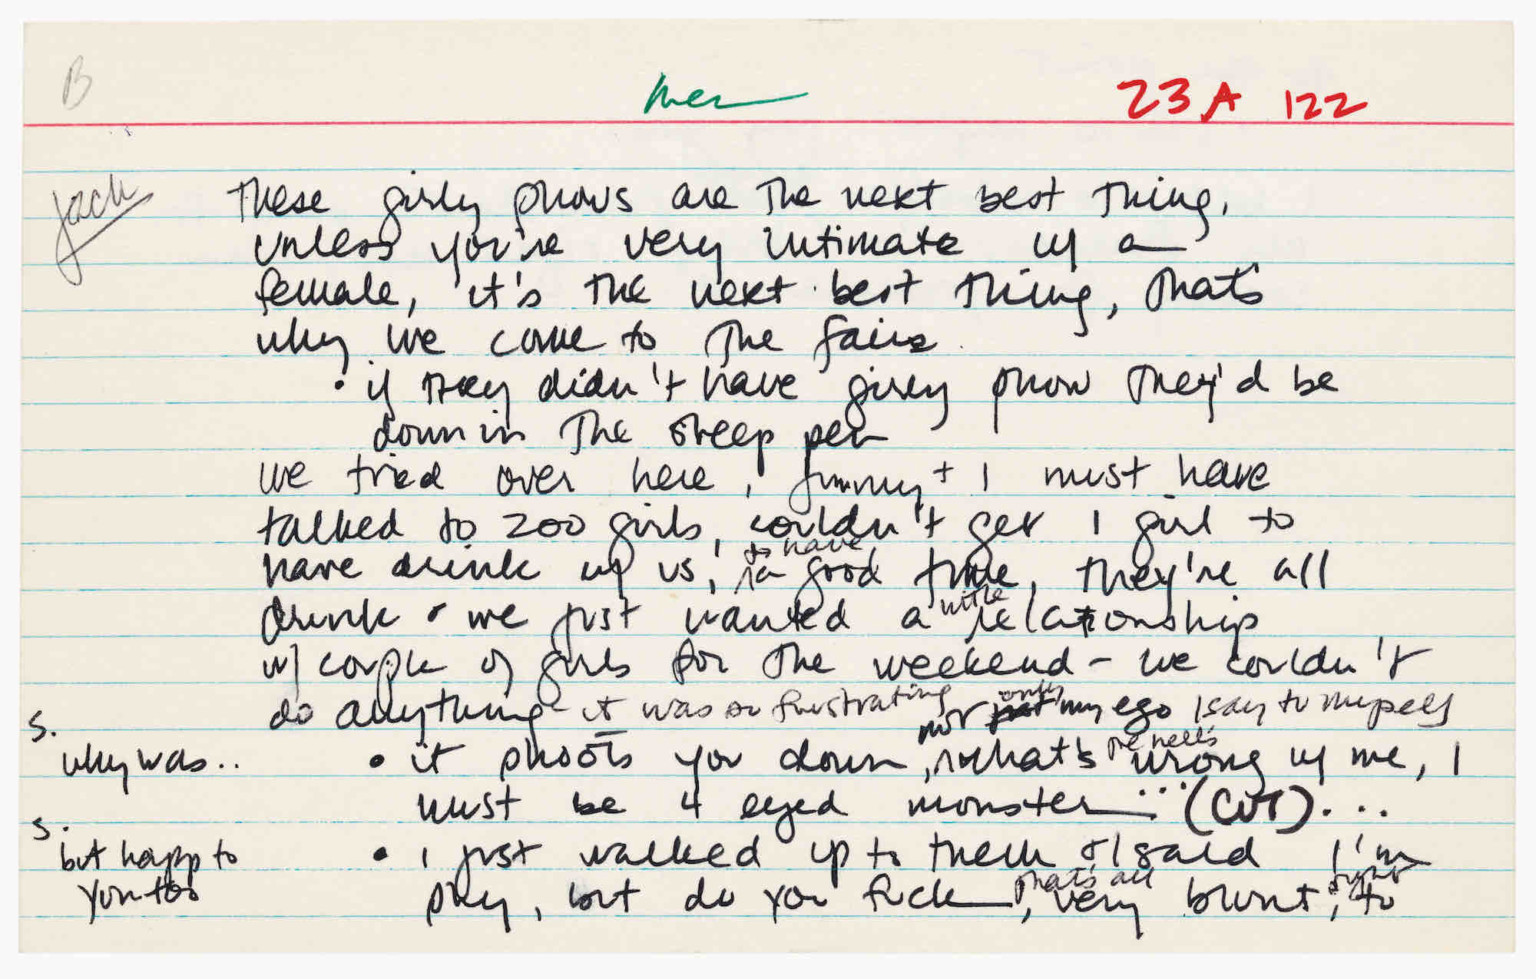 B
men
23A 122
Jack
These girly shows are the next best thing,
unless you're very intimate w/ a
female, it's the next best thing, that's
why we come to the fairs.
• if they didn't have girly show they'd be
down in the sheep pen
we tried over here, Jimmy + I must have
talked to 200 girls, couldn't get 1 girl to
have drink w/ us, to have a good time, they're all
drink • we just wanted a little relationship
w/ couple of girls for the weekend - we couldn't
do anything - it was so frustrating not only my ego I say to myself
S.
why was..
• it shoots you down, what's the hell's wrong w/ me, I
must be 4 eyed monster ... (CUT) ...
S.
but happ to
you too
• I just walked up to them & I said I'm
shy, but do you fuck, that's all very blunt, right to